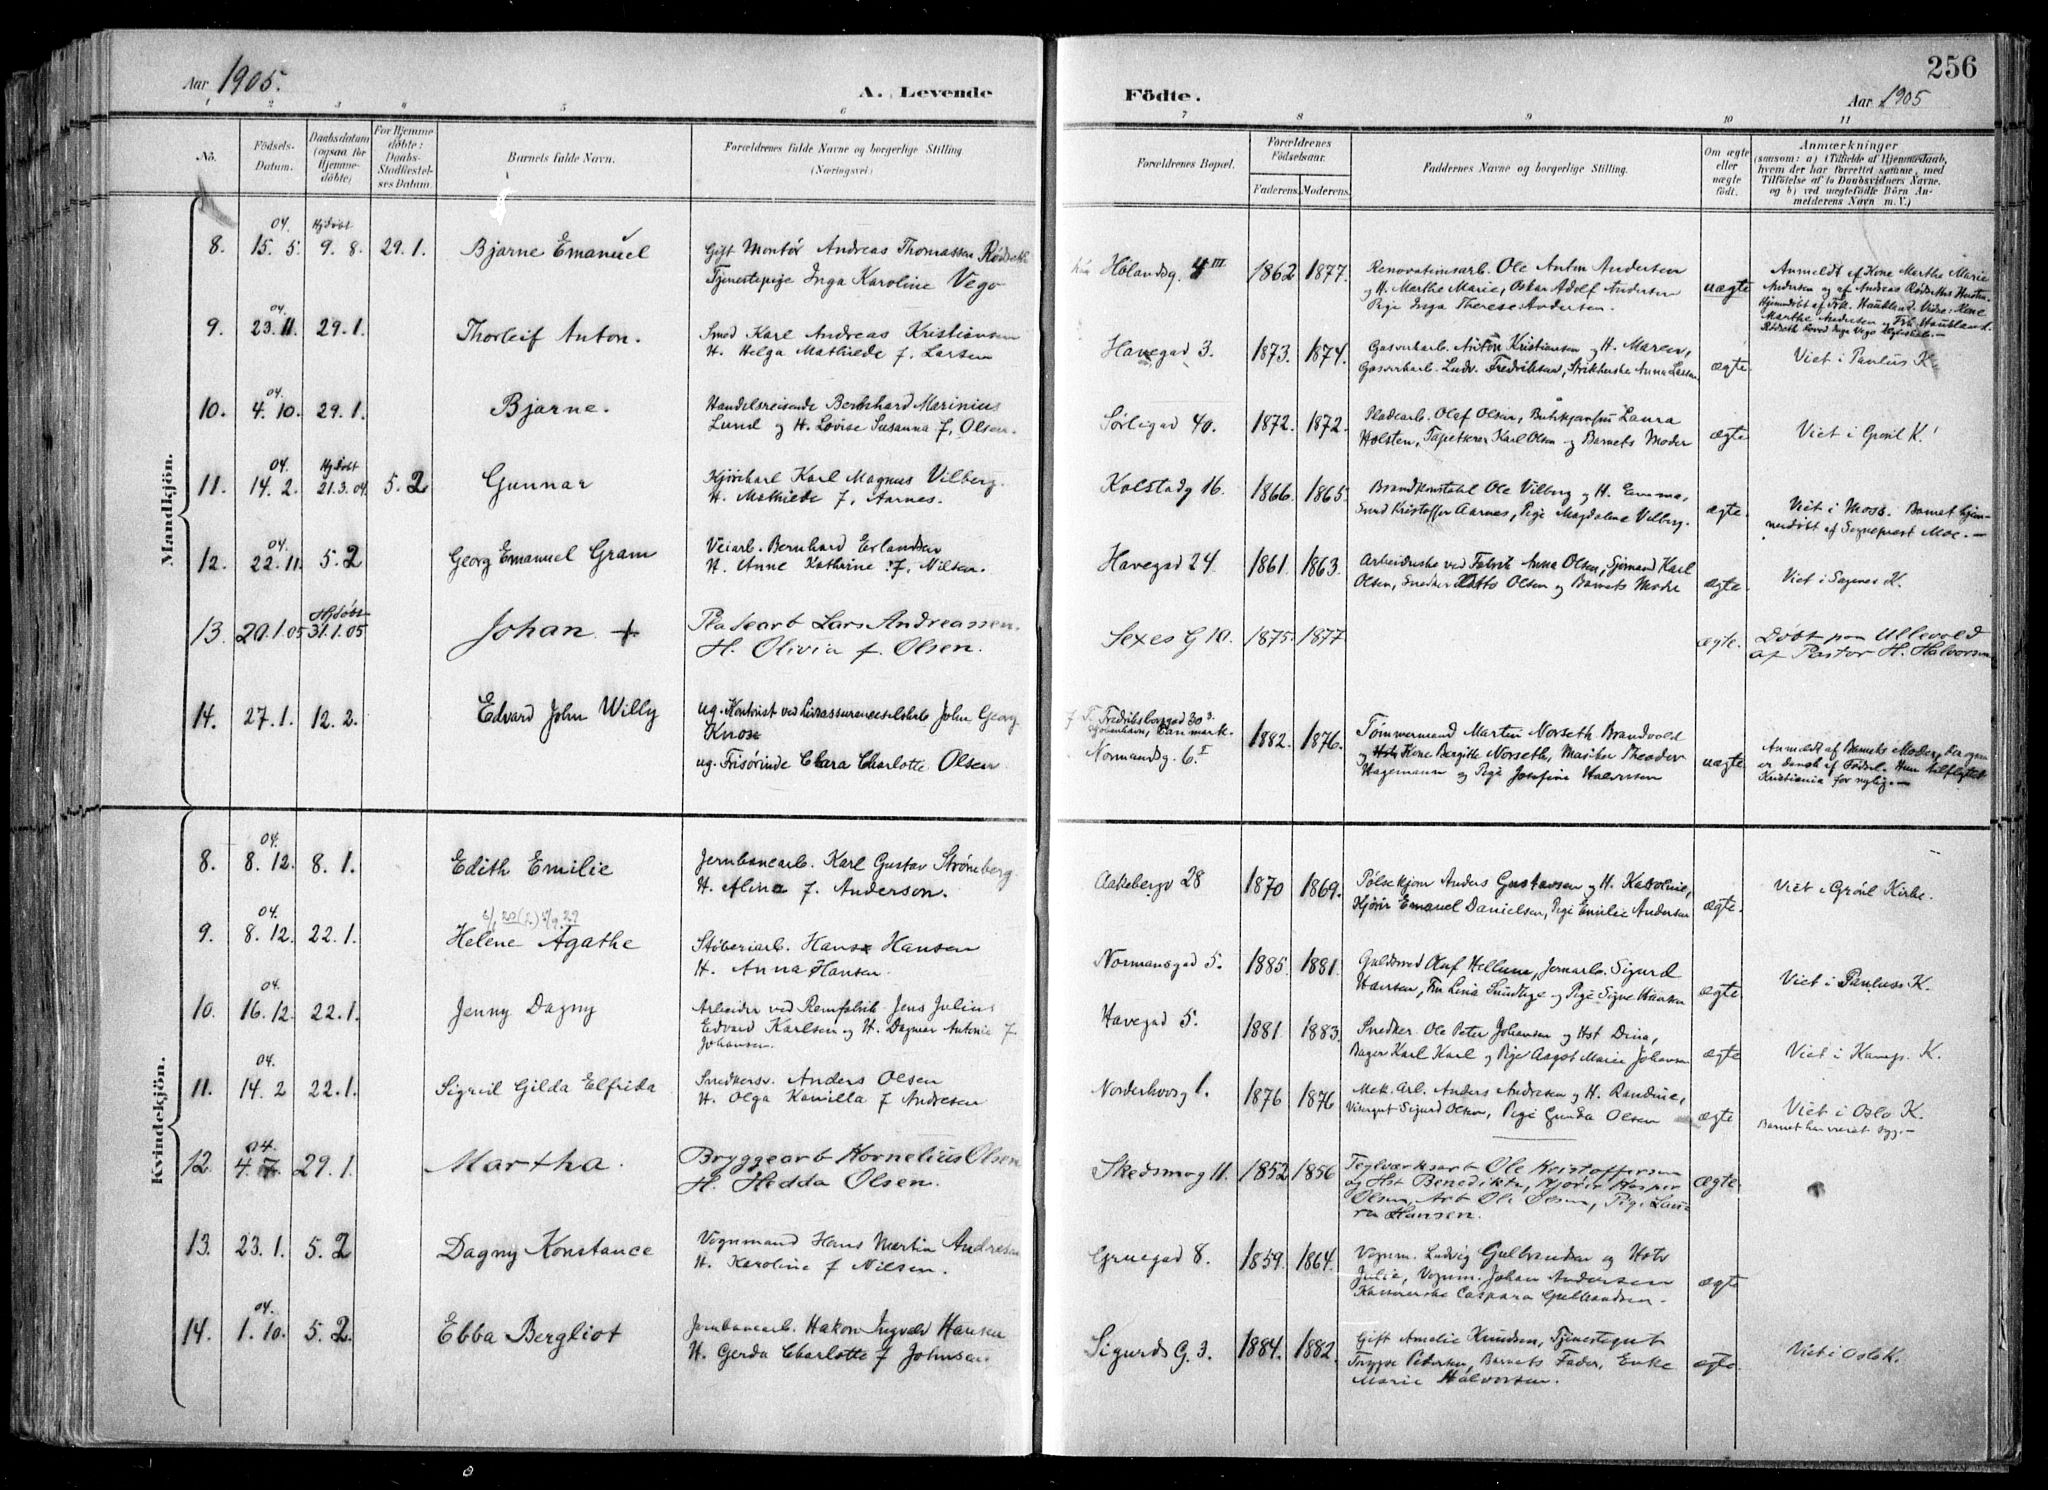 Aar 1905. A. Levende
1 2 3 4 5 6
No. Födsels-Datum. Daabsdatum (ogsaa for Hjemme-döbte) For Hjemme-döbte: Daabs-Stadfæstelses Datum. Barnets fulde Navn. Forældrenes fulde Navne og borgerlige Stilling. (Næringsvei)
Mandkjön.
04. Hjdøbt
8. 15. 5. 9. 8. 29. 1. Bjarne Emanuel Gift Montør Andreas Thomassen Rødseth
Tjenestepige Inga Karoline Vego
04.
9. 23. 11. 29. 1. Thorleif Anton. Smed Karl Andreas Kristiansen
H. Helga Mathilde f. Larsen
04.
10. 4. 10. 29. 1. Bjarne. Handelsreisende Bernhard Marinius
Lund og H. Lovise Susanna f. Olsen.
04. Hjdøbt
11. 14. 2. 21.3.04. 5. 2 Gunnar Kjørekarl Karl Magnus Vilberg.
H. Mathilde f. Aarnes.
04.
12. 22. 11. 5. 2 Georg Emanuel Gram Veiarb. Bernhard Erlandsen
H. Anne Kathrine f. Nilsen.
Hjdøbt
13. 20.1.05 31.1.05 Johan + Pladearb Lars Andreassen.
H. Olivia f. Olsen.
14. 27. 1. 12. 2. Edvard John Willy ug. Kontorist ved Livsassuranceselskab John Georg
Knox
ug. Frisørinde Clara Charlotte Olsen
Kvindekjön.
04.
8. 8. 12. 8. 1. Edith Emilie Jernbanearb. Karl Gustav Strøneberg
H. Alina f. Anderson.
04.
9. 8. 12. 22. 1. Helene Agathe Støberiarb. Hans Hansen
H. Anna Hansen.
04.
10. 16. 12. 22. 1. Jenny Dagny Arbeider ved Remfabrik Jens Julius
Edvard Karlsen og H. Dagmar Antonie f
Johansen.
04.
11. 14. 2 22. 1. Sigrid Gilda Elfrida Snedkersv. Anders Olsen
H. Olga Kamilla f Andresen
04.
12 4. 29. 1. Martha. Bryggearb Kornelius Olsen
H. Hedda Olsen.
13. 23. 1. 5. 2 Dagny Konstance Vognmand Hans Martin Andresen
H. Karoline f Nilsen.
04.
14. 1. 10. 5. 2. Ebba Bergliot Jernbanearb. Hakon Ingvald Hansen
H. Gerda Charlotte f Johnsen.
256
Födte. Aar 1905
7 8 9 10 11
Forældrenes Bopæl. Forældrenes Födselsaar. Faderens. Moderens. Faddernes Navne og borgerlige Stilling. Om ægte eller uægte födt. Anmærkninger
(saasom: a) (Tilfælde af Hjemmedaab, hvem der har forrettet samme, med Tilföielse af to Daabsvidners Navne, og b) ved uægtefödte Börn Anmelderens Navn m. V.)
Hølandsg. 4 III 1862 1877. Renovationsarb. Ole Anton Andersen
og H. Marthe Marie, Oskar Adolf Andersen
Pige Inga Therese Andersen. uægte Anmeldt af Kone Marthe Marie
Andersen og af Andreas Rødseths Hustru.
Hjemdøbt af Frk. Haukland. Vidne: Kone
Marthe Andersen og Frk. Haukland.
Havegad 3. 1873. 1874. Gasverkarb. Anton Kristiansen og H. Maren,
Gasverkarb. Ludv. Fredriksen, Strikkerske Anna Larsen ægte. Viet i Paulus K
Sørligad 40. 1872. 1872. Pladearb. Olaf Olsen, Butikjomfru Laura
Holsten, Tapetserer Karl Olsen og Barnets Moder ægte Viet i Grønl K.
Kolstadg 16. 1866. 1865. Brandkonstabl Ole Vilberg og H. Emma,
Smed Kristoffer Aarnes, Pige Magdalene Vilberg. ægte. Viet i Moss. Barnet hjem-
medøbt af Sogneprest Moe.—
Havegad 24 1861. 1863. Arbeiderske ved Fabrik Anna Olsen, Sjømand Karl
Olsen, Snedker Otto Olsen og Barnets Moder ægte. Viet i Sagenes K.
Sexes G 10. 1875. 1877 ægte. Døbt paa Ullevold
af Pastor H. Halvorsen
f F. Fredriksborgad 30 3.
Kjøbenhavn, Danmark.
Normandsg. 6. I 1882. 1876. Tømmermand Martin Norseth Brandvold
og Kone Bergitte Norseth, Musiker Theodor
Hagemann og Pige Josefine Halvorsen uægte Anmeldt af Barnets Moder, der ogsaa
er dansk af Fødsel. Hun tilflyttet
Kristiania for nylig.—
Aakebergv 28 1870 1869. Pølsekjøm Anders Gustavsen og H. Karoline,
Kjører Emanuel Danielsen, Pige Emilie Andersen ægte. Viet i Grønl Kirke.
Normansgad 5. 1885. 1881. Guldsmed Oluf Hellum, Jernarb. Sigurd
Hansen, Fru Lina Smidhge og Pige Signe Hansen ægte. Viet i Paulus K.
Havegad 5. 1881 1883. Snedker Ole Peter Johansen og Hst Dina,
Bager Karl Karl og Pige Aagot Marie Johansen ægte Viet i Kamp. K.
Norderhovsg 1. 1876 1876 Mek. Arb. Anders Andresen og H. Randine,
Visergut Sigurd Olsen, Pige Gunda Olsen ægte Viet i Oslo K.
Barnet har været syg.—
Skedsmog 11. 1852 1856 Teglværksarb Ole Kristoffersen
og Hst Benedikte, Kjører Kasper
Olsen, Arb Ole Olsen, Pige Lau
ra Hansen. ægte
Gruegad 8. 1859. 1864. Vognm. Ludvig Gulbrandsen og Hst
Julie, Vognm. Johan Andersen
Kassererske Caspara Gulbrandsen. ægte
Sigurds G. 3. 1884. 1882. Gift Amelie Knudsen, Tjenestegut
Trygve Pedersen, Barnets Fader, Enke
Marie Halvorsen. ægte Viet i Oslo K.